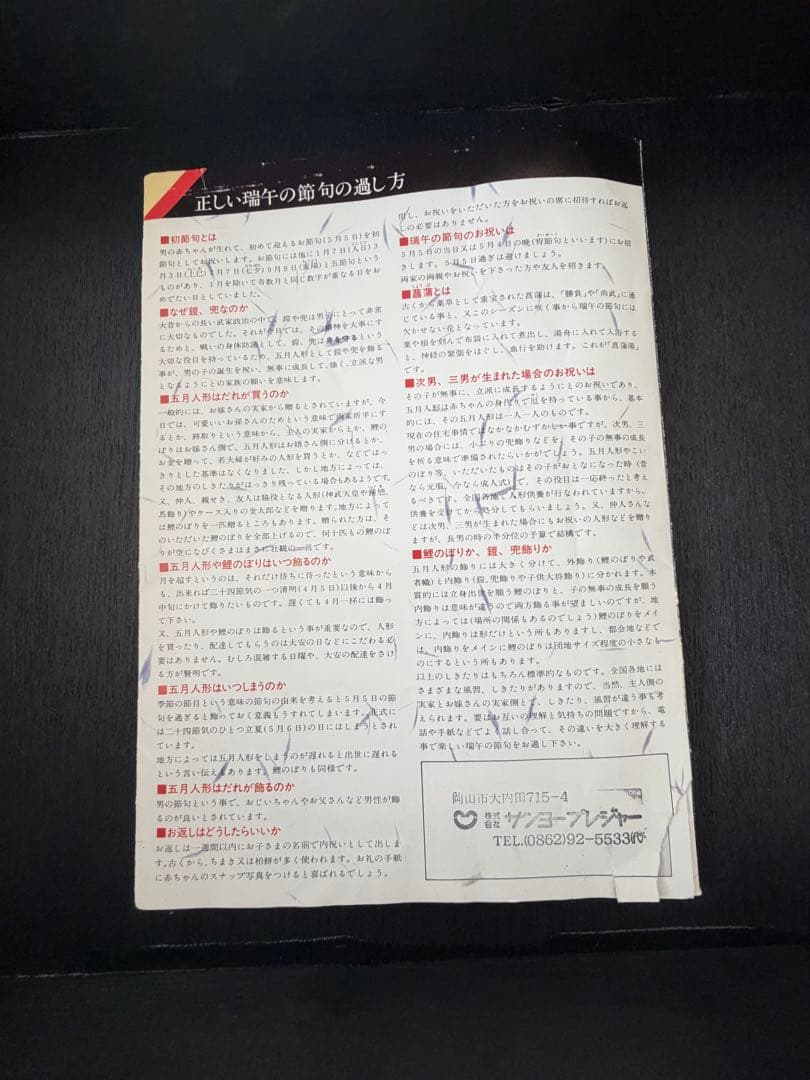 正しい瑞午の節句の過し方
■初節句とは
男の赤ちゃんが生れて、初めて迎えるお節句(5月5日)を初
節句としてお祝いします。お節句には他に1月7日(人日)3
月3日(上巳)7月7日(七夕)9月9日(重陽)と五節句という
ものがあり、1月を除いて奇数月と同じ数字が重なる日をお
めでたい日としていました。
■なぜ鎧、兜なのか
大昔からの長い武家政治の中で、鎧や兜は男子にとって非常
に大切なものでした。それが今日では、その精神を大事にす
るためと、戦いの身体防護として、鎧、兜は身を守るという
大切な役目を持っているため、五月人形として鎧や兜を飾る
事が、男の子の誕生を祝い、無事に成長して、強く、立派な男
となるようにとの家族の願いを意味します。
■五月人形はだれが買うのか
一般的には、お嫁さんの実家から贈るとされていますが、今
日では、可愛いいお孫さんのためという意味で両家折半にす
るとか、跡取りという意味から、主人の実家からとか、鯉の
ぼりはお嫁さん側で、五月人形はお婿さん側に分けるとか、
お金を贈って、若夫婦が好みの人形を買うとか、などではっ
きりとした基準はなくなりました。しかし地方によっては、
その地方のしきたりがはっきり残っている場合もあるようです。
又、仲人、親せき、友人は脇役となる人形(神武天皇や鍾馗、
馬飾り)やケース入りの金太郎などを贈ります。地方によって
は鯉のぼりを一匹贈るところもあります。贈られた方は、そ
のいただいた鯉のぼりを全部上げるので、何十匹もの鯉のぼ
りが空になびくさまはまさに壮観の一言です。
■五月人形や鯉のぼりはいつ飾るのか
月を超すというのは、それだけ待ちに待ったという意味から
も、出来れば二十四節気の一つ清明(4月5日)以後から4月
中旬にかけて飾りたいものです。遅くても4月一杯には飾っ
て下さい。
又、五月人形や鯉のぼりは飾るという事が重要なので、人形
を買ったり、配達してもらうのは大安の日などにこだわる必
要はありません。むしろ混雑する日曜や、大安の配達をさけ
る方が賢明です。
■五月人形はいつしまうのか
季節の節目という意味の節句の由来を考えると5月5日の節
句を過ぎると飾っておく意義もうすれてしまいます。正式に
は二十四節気のひとつ立夏(5月6日)の日にはしまうとされ
ています。
地方によっては五月人形をしまうのが遅れると出世に遅れる
という言い伝えもあります。鯉のぼりも同様です。
■五月人形はだれが飾るのか
男の節句という事で、おじいちゃんやお父さんなど男性が飾
るのが良いとされています。
■お返しはどうしたらいいか
お返しは一週間以内にお子さまの名前で内祝いとして出しま
す。古くから、ちまき又は柏餅が多く使われます。お礼の手紙
に赤ちゃんのスナップ写真をつけると喜ばれるでしょう。
但し、お祝いをいただいた方をお祝いの席に招待すればお返
しの必要はありません。
■瑞午の節句のお祝いは
5月5日の当日又は5月4日の晩(宵節句といいます)にお招
きします。5月5日過ぎは避けましょう。
両家の両親やお祝いを下さった方や友人を招きます。
■菖蒲とは
古くから薬草として重宝された菖蒲は、「勝負」や「尚武」に通
じている事と、又このシーズンに咲く事から瑞午の節句には
欠かせない花となっています。
葉や根を刻んで布袋に入れて煮出し、湯舟に入れて入浴する
と、神経の緊張をほぐし、血行を助けます。これが「菖蒲湯」
です。
■次男、三男が生まれた場合のお祝いは
その子が無事に、立派に成長するようにとのお祝いであり、
五月人形は赤ちゃんの身代りで厄を持っている事から、基本
的には、その五月人形は一人一人のものです。
現在の住宅事情ではなかなかむずかしい事ですが、次男、三
男の場合には、小ぶりの兜飾りなどを、その子の無事の成長
を祈る意味で準備されたらいかがでしょう。五月人形やこい
のぼり等、いただいたものはその子がおとなになった時(昔
なら元服、今なら成人式)で、その役目は一応終ったと考え
るべきです。全国各地で人形供養が行なわれていますから、
供養を受けてから処分してもらいましょう。又、仲人さんな
どは次男、三男が生まれた場合にもお祝いの人形などを贈り
ますが、長男の時の半分位の予算で結構です。
■鯉のぼりか、鎧、兜飾りか
五月人形の飾りには大きく分けて、外飾り(鯉のぼりや武
者幟)と内飾り(鎧、兜飾りや子供大将飾り)に分かれます。本
質的には立身出世を願う鯉のぼりと、子の無事の成長を願う
内飾りは意味が違うので両方飾る事が望ましいのですが、地
方によっては(場所の関係もあるのでしょう)鯉のぼりをメイ
ンに、内飾りは形だけという所もありますし、都会地などで
は、内飾りをメインに鯉のぼりは団地サイズ程度の小さなも
のにするという所もあります。
以上のしきたりはもちろん標準的なものです。全国各地には
さまざまな風習、しきたりがありますので、当然、主人側の
実家とお嫁さんの実家側とで、しきたり、風習が違う事も考
えられます。要はお互いの理解と気持ちの問題ですから、電
話や手紙などでよく話し合って、その違いを大きく理解する
事で楽しい瑞午の節句をお過し下さい。
岡山市大内田715-4
株式会社 サンヨープレジャー
TEL.(0862)92-5533㈹